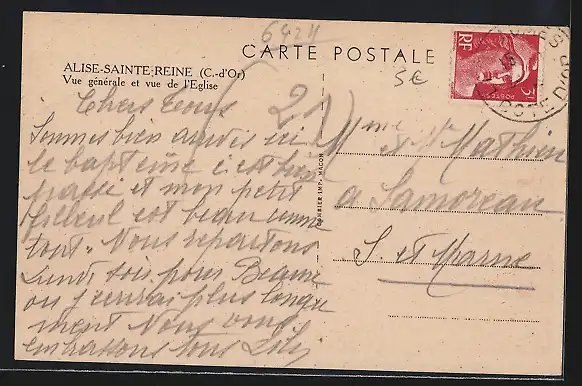 6424
CARTE POSTALE
5€
RF
3F
POSTES
COTE D'OR
ALISE-SAINTE-REINE (C.-d'Or)
Vue générale et vue de l'Eglise
21
Chers Tous
Sommes bien arrivés ici
le baptême c'est bien
passé et mon petit
filleul est beau comme
tout. Nous repartons
Lundi soir pour Beaune
ou j'ecrirai plus longue
ment Nous vous
embrassons tous Lily
COMBIER IMP. MACON
Mme et Mr Mathieu
a Samoreau
S. et Marne